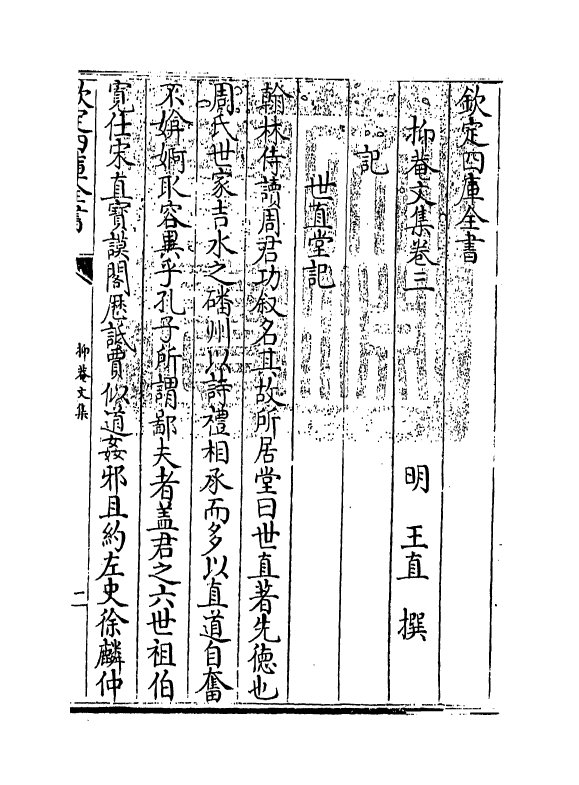 欽定四庫全書
抑菴文集卷三
明 王直 撰
記
世直堂記
翰林侍讀周君功叙名其故所居堂曰世直著先徳也
周氏世家吉水之磻州以詩禮相承而多以直道自奮
不媕婀取容異乎孔子所謂鄙夫者盖君之六世祖伯
寛仕宋直寳謨閣歴詆賈似道姦邪且約左史徐麟仲
欽定四庫全書
抑菴文集
一